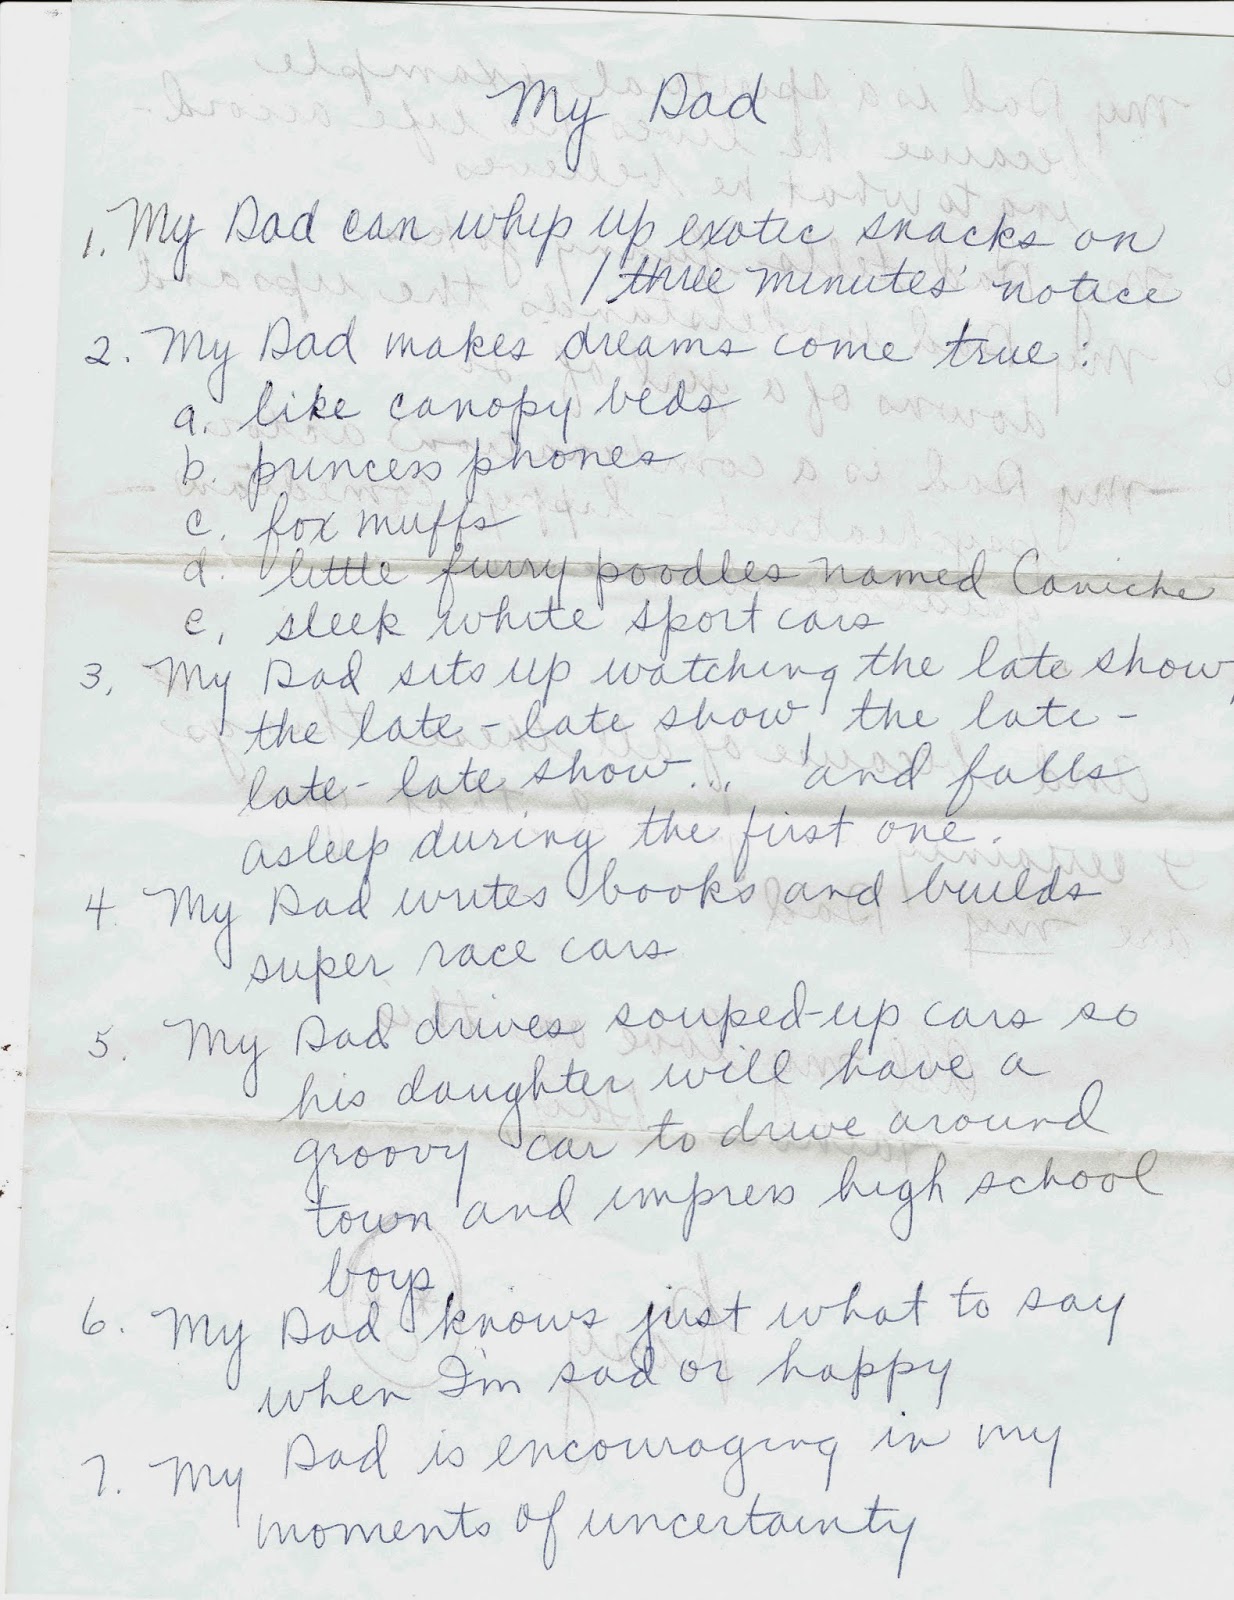 My Dad
1. My Dad can whip up exotic snacks on
/ three minutes' notice
2. My Dad makes dreams come true:
a. like canopy beds
b. princess phones
c. fox muffs
d. little furry poodles named Caniche
e. sleek white sport cars
3. My Dad sits up watching the late show,
the late-late show, the late-
late-late show... and falls
asleep during the first one.
4. My Dad writes books and builds
super race cars
5. My Dad drives souped-up cars so
his daughter will have a
groovy car to drive around
town and impress high school
boys
6. My Dad knows just what to say
when I'm sad or happy
7. My Dad is encouraging in my
moments of uncertainty